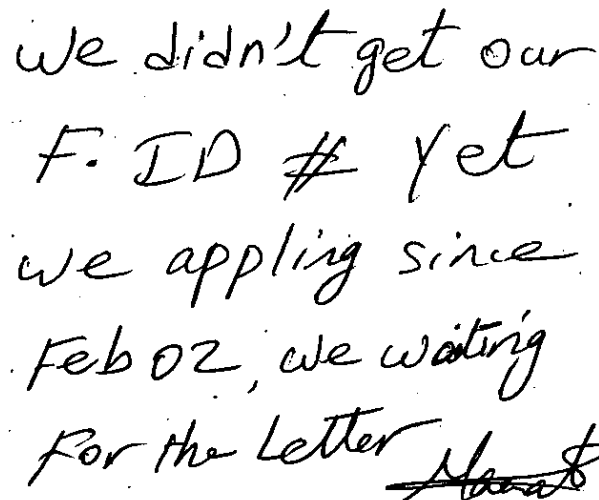 we didn't get our
F. ID # Yet
we appling since
Feb 02, we waiting
For the Letter